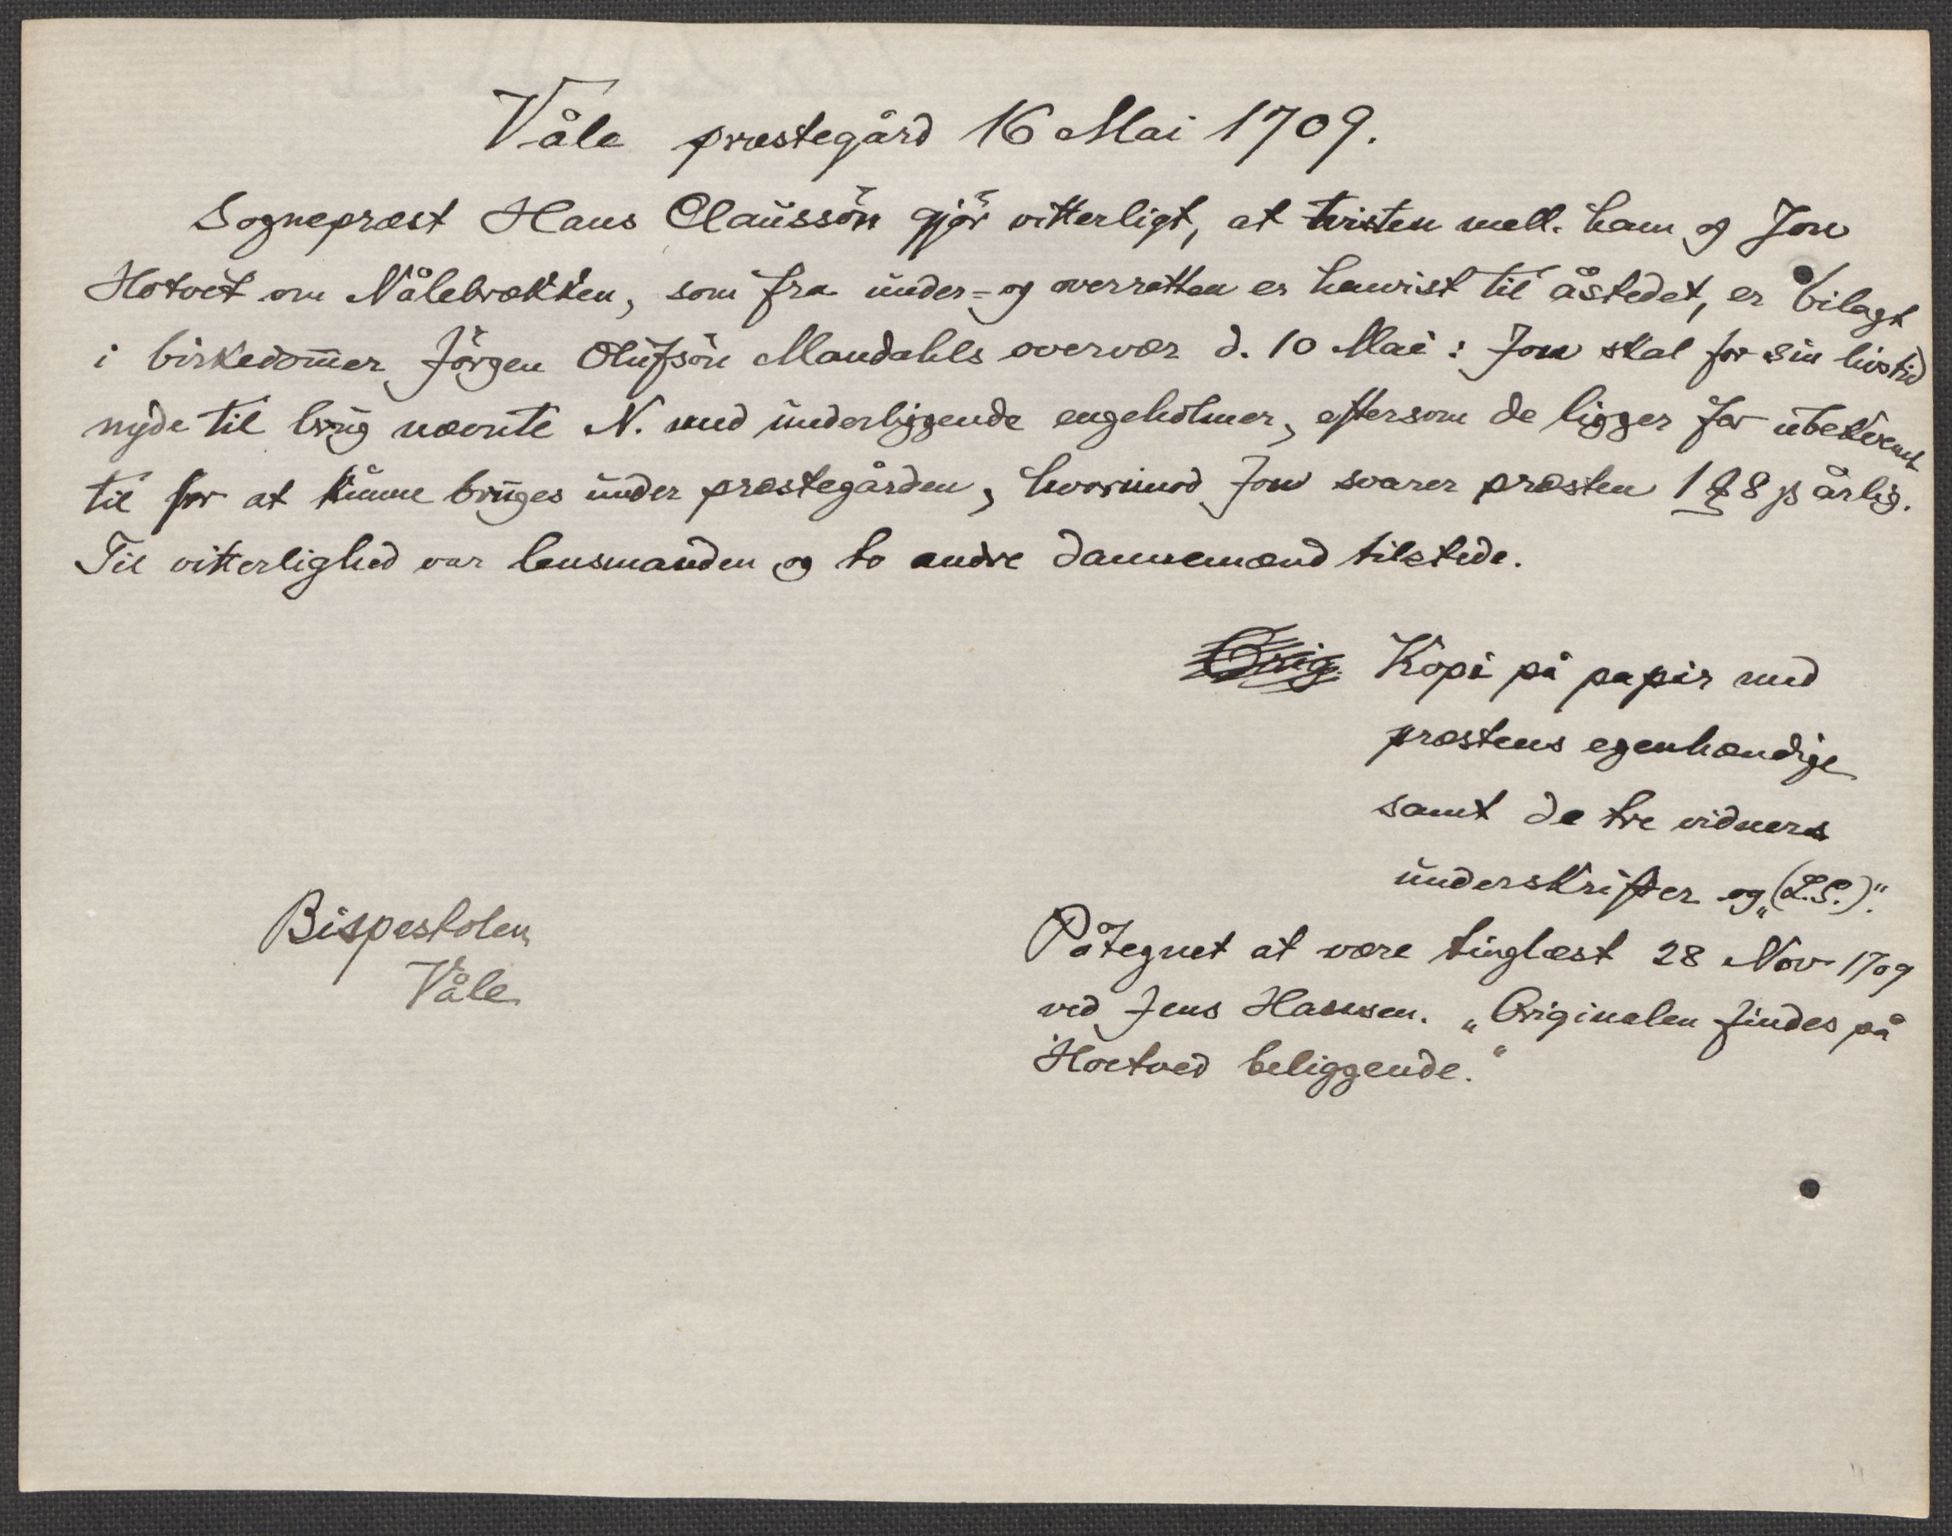 Våle præstegård 16 Mai 1709.
Sognepræst Hans Claussön gjör vitterligt, at tvisten mell. ham og Jon
Hotvet om Nålebrækken, som fra under= og overretten er henvist til åstedet, er bilagt
i birkedom̄er Jörgen Olufsön Mandahls overvær d. 10 Mai: Jon skal for sin livstid
nyde til brug nævnte N. med underliggende engeholmer, eftersom de ligger for ubekvemt
til for at kunne bruges under præstegården, hvorimod Jon svarer præsten 1 8 ß årlig.
Til vitterlighed var lensmanden og to andre dannemænd tilstede.
Orig. Kopi på papir med
præstens egenhændige
samt de tre vidners
underskrifter og „(L.S.)“.
Bispestolen
Våle
Påtegnet at være tinglæst 28 Nov 1709
ved Jens Hansen. „Originalen findes på
Hoetved beliggende.“